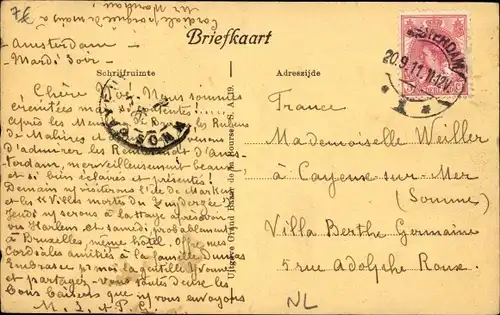 7£
Cordiale poignée de mains
Mr
Amsterdam
Mardi Soir
Briefkaart
Schrijfruimte
Adreszijde
AMSTERDAM
20.9.11. 11-12V
1
CAYEUX
Chère Nous sommes
éreintées mais contentes!
après les Rubens
de Malines
d'admirer les Rembrandt d'Ams-
terdam, merveilleusement beaux
et si bien éclairés et présentés!
Demain ns visitons l'île de Marken
et les "Villes mortes du Zuyderzée"
Jeudi ns serons à La Haye après avoir
vu Harlem et samedi probablement
à Bruxelles, même hôtel. Offre nos
Cordiales amitiés à la famille Dumas
Embrasse pr moi la gentille Yvonne
et partagez-vous toutes deux les
bons baisers que ns vous envoyons
M. L. et P. L.
Uitgave Grand Bazar de la Bourse S. A. 219.
France
Mademoiselle Weiller
à Cayeux-sur-Mer
(Somme)
Villa Berthe Germaine
5 rue Adolphe Roux.
NL